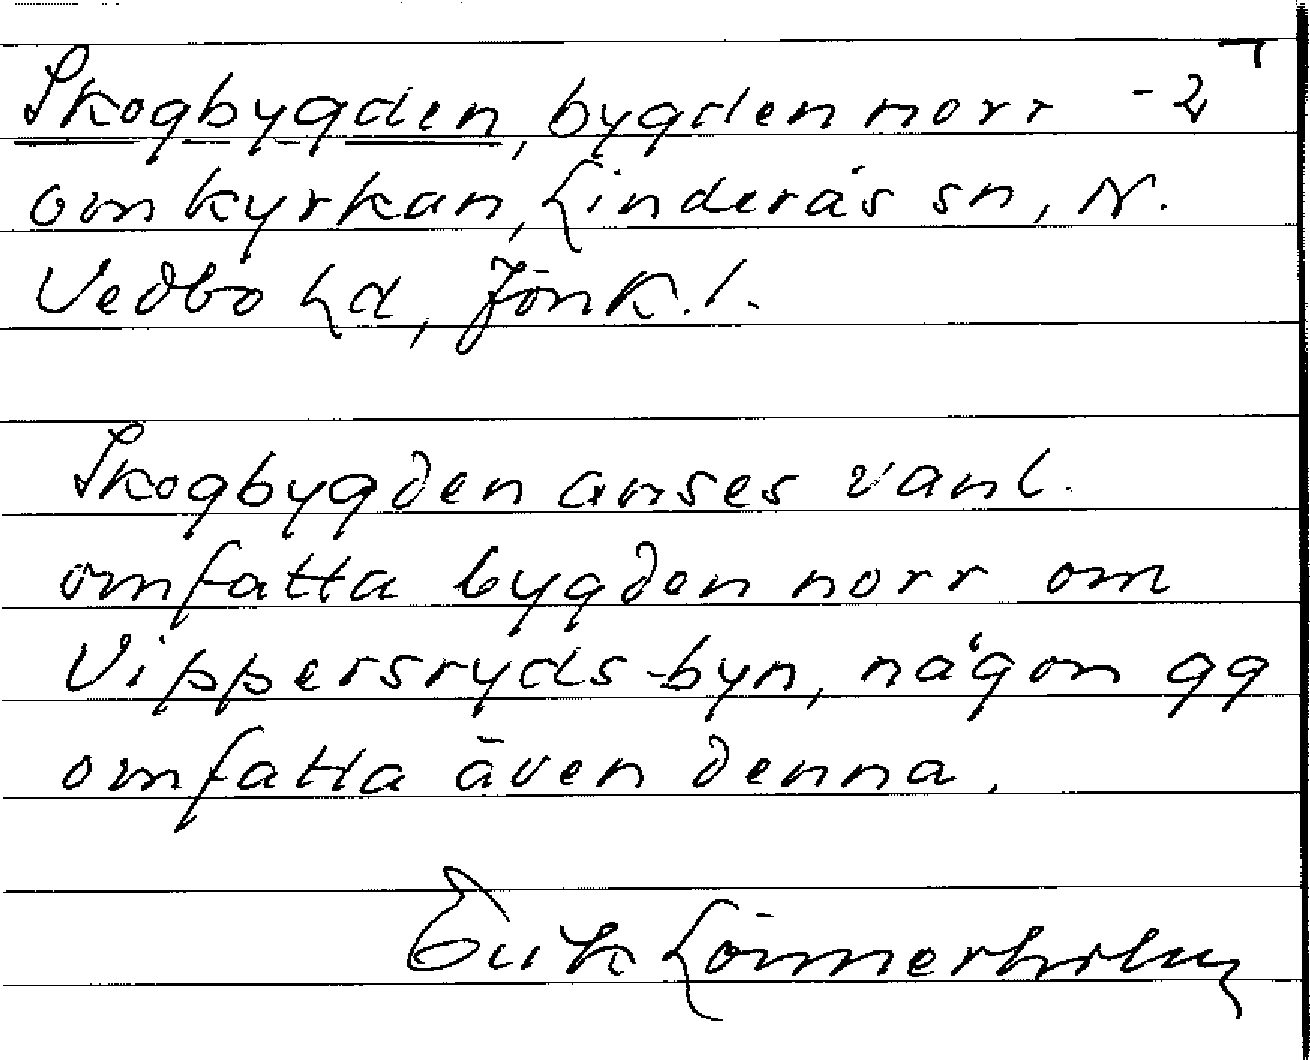 Skogbygden, bygden norr -2
om kyrkan, Linderås sn, N.
Vedbo hd, Jönk. l.
Skogbygden anses vanl.
omfatta bygden norr om
Vippersryds-byn, någon gg
omfatta även denna.
Erik Lönnerholm